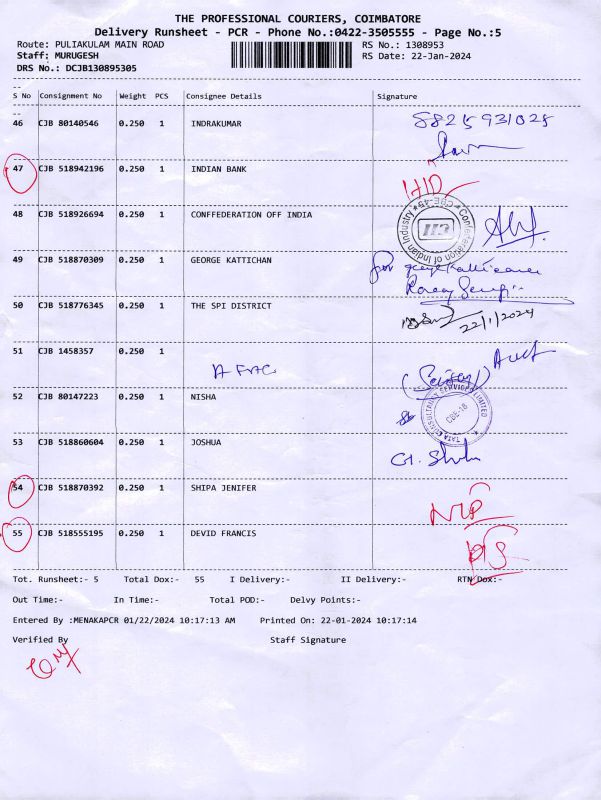 THE PROFESSIONAL COURIERS, COIMBATORE
Delivery Runsheet - PCR - Phone No.:0422-3505555 - Page No.:5
Route: PULIAKULAM MAIN ROAD RS No.: 1308953
Staff: MURUGESH RS Date: 22-Jan-2024
DRS No.: DCJB130895305
S No Consignment No Weight PCS Consignee Details Signature
46 CJB 80140546 0.250 1 INDRAKUMAR
47 CJB 518942196 0.250 1 INDIAN BANK
48 CJB 518926694 0.250 1 CONFFEDERATION OFF INDIA
Confederation of Indian Industry * CBE-45 *
CII
49 CJB 518870309 0.250 1 GEORGE KATTICHAN
50 CJB 518776345 0.250 1 THE SPI DISTRICT
22/1/2024
51 CJB 1458357 0.250 1
52 CJB 80147223 0.250 1 NISHA
TATA CONSULTANCY SERVICES LIMITED
CBE-18
53 CJB 518860604 0.250 1 JOSHUA
54 CJB 518870392 0.250 1 SHIPA JENIFER
55 CJB 518555195 0.250 1 DEVID FRANCIS
Tot. Runsheet:- 5 Total Dox:- 55 I Delivery:- II Delivery:- RTN Dox:-
Out Time:- In Time:- Total POD:- Delvy Points:-
Entered By :MENAKAPCR 01/22/2024 10:17:13 AM Printed On: 22-01-2024 10:17:14
Verified By Staff Signature